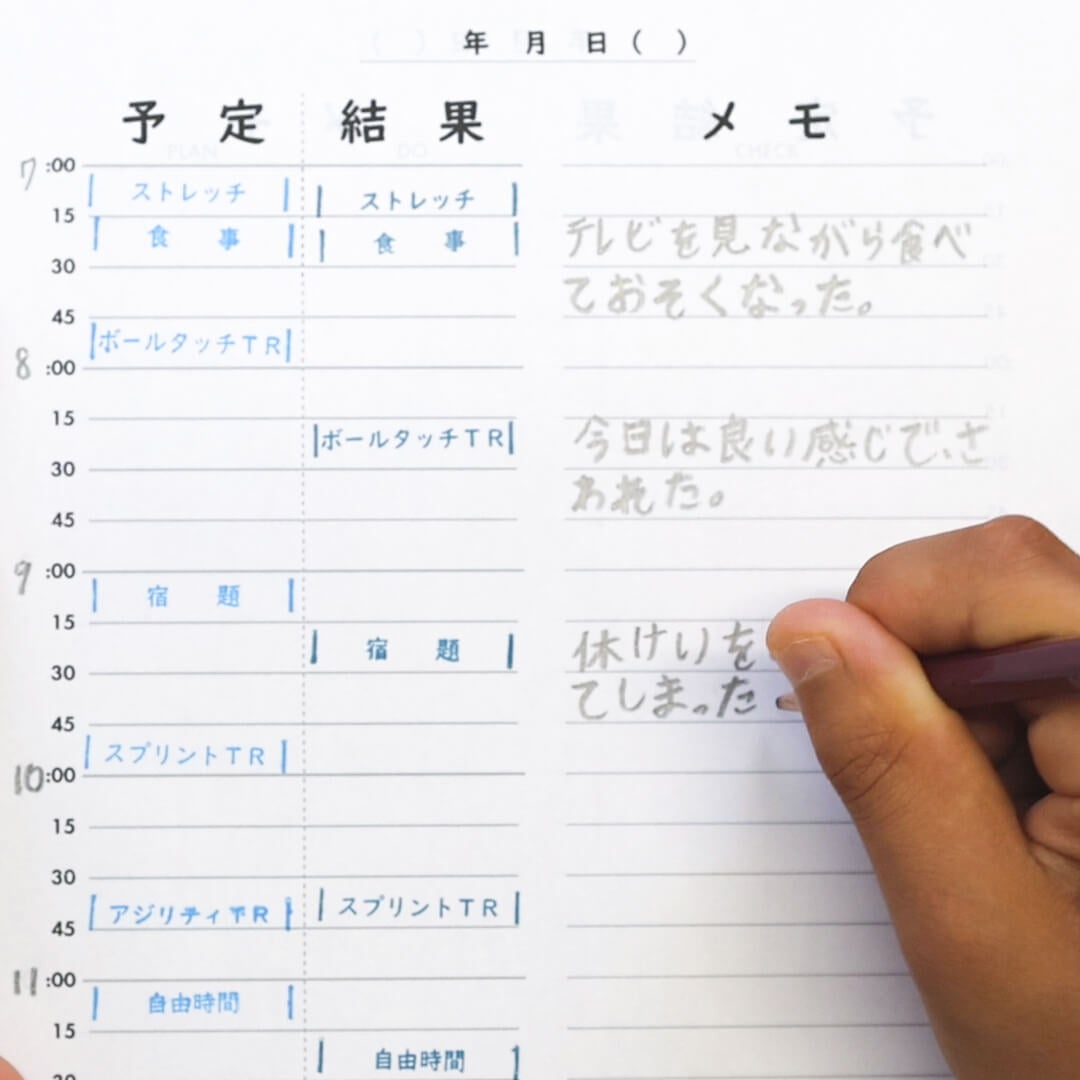 年 月 日 ( )
予定 結果 メモ
PLAN DO CHECK
7 :00
ストレッチ ストレッチ
15
食事 食事 テレビを見ながら食べ
30
ておそくなった。
45
ボールタッチTR
8 :00
15
ボールタッチTR 今日は良い感じで、さ
30
われた。
45
9 :00
宿題
15
宿題 休けいを
30
てしまった
45
スプリントTR
10 :00
15
30
アジリティTR スプリントTR
45
11 :00
自由時間
15
自由時間
30